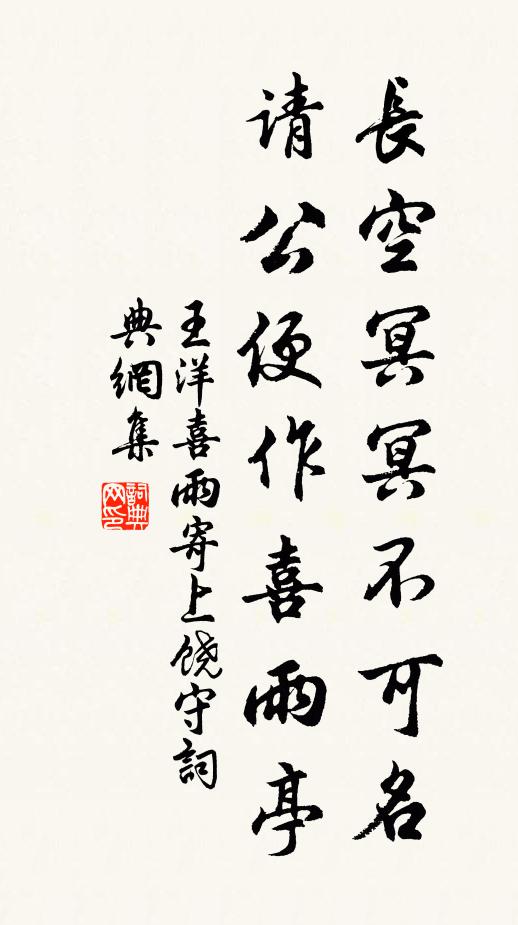 長空冥冥不可名
请公便作喜雨亭
王洋喜雨寄上饶守詞
典網集
詞典网印